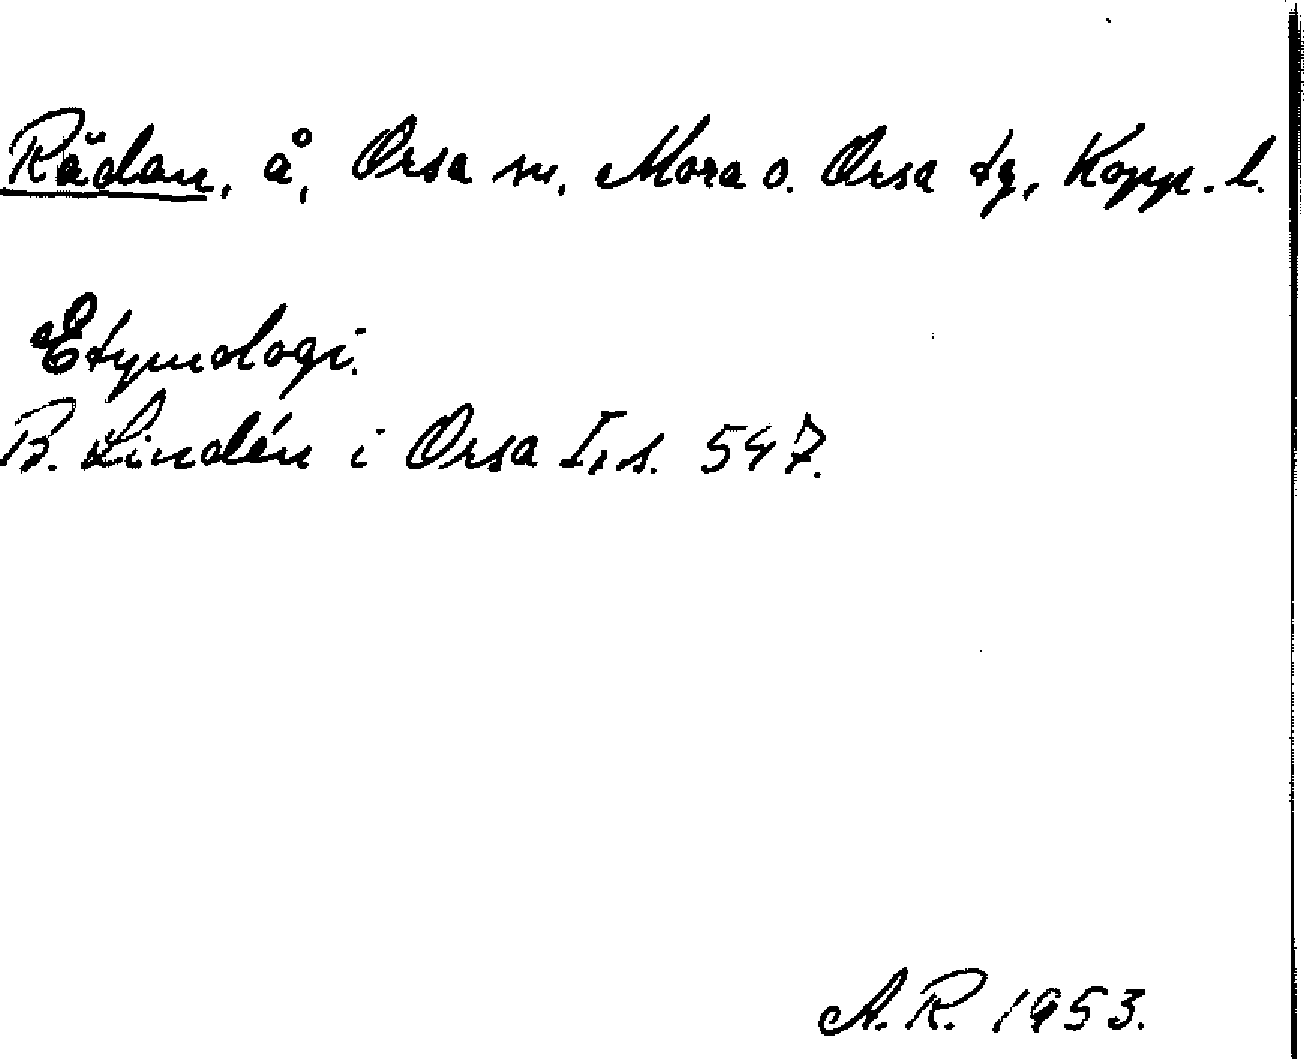 Rädan, å, Orsa sn. Mora o. Orsa tg, Kopp. l.
Etymologi.
B. Lindén i Orsa I, s. 547.
A.R. 1953.